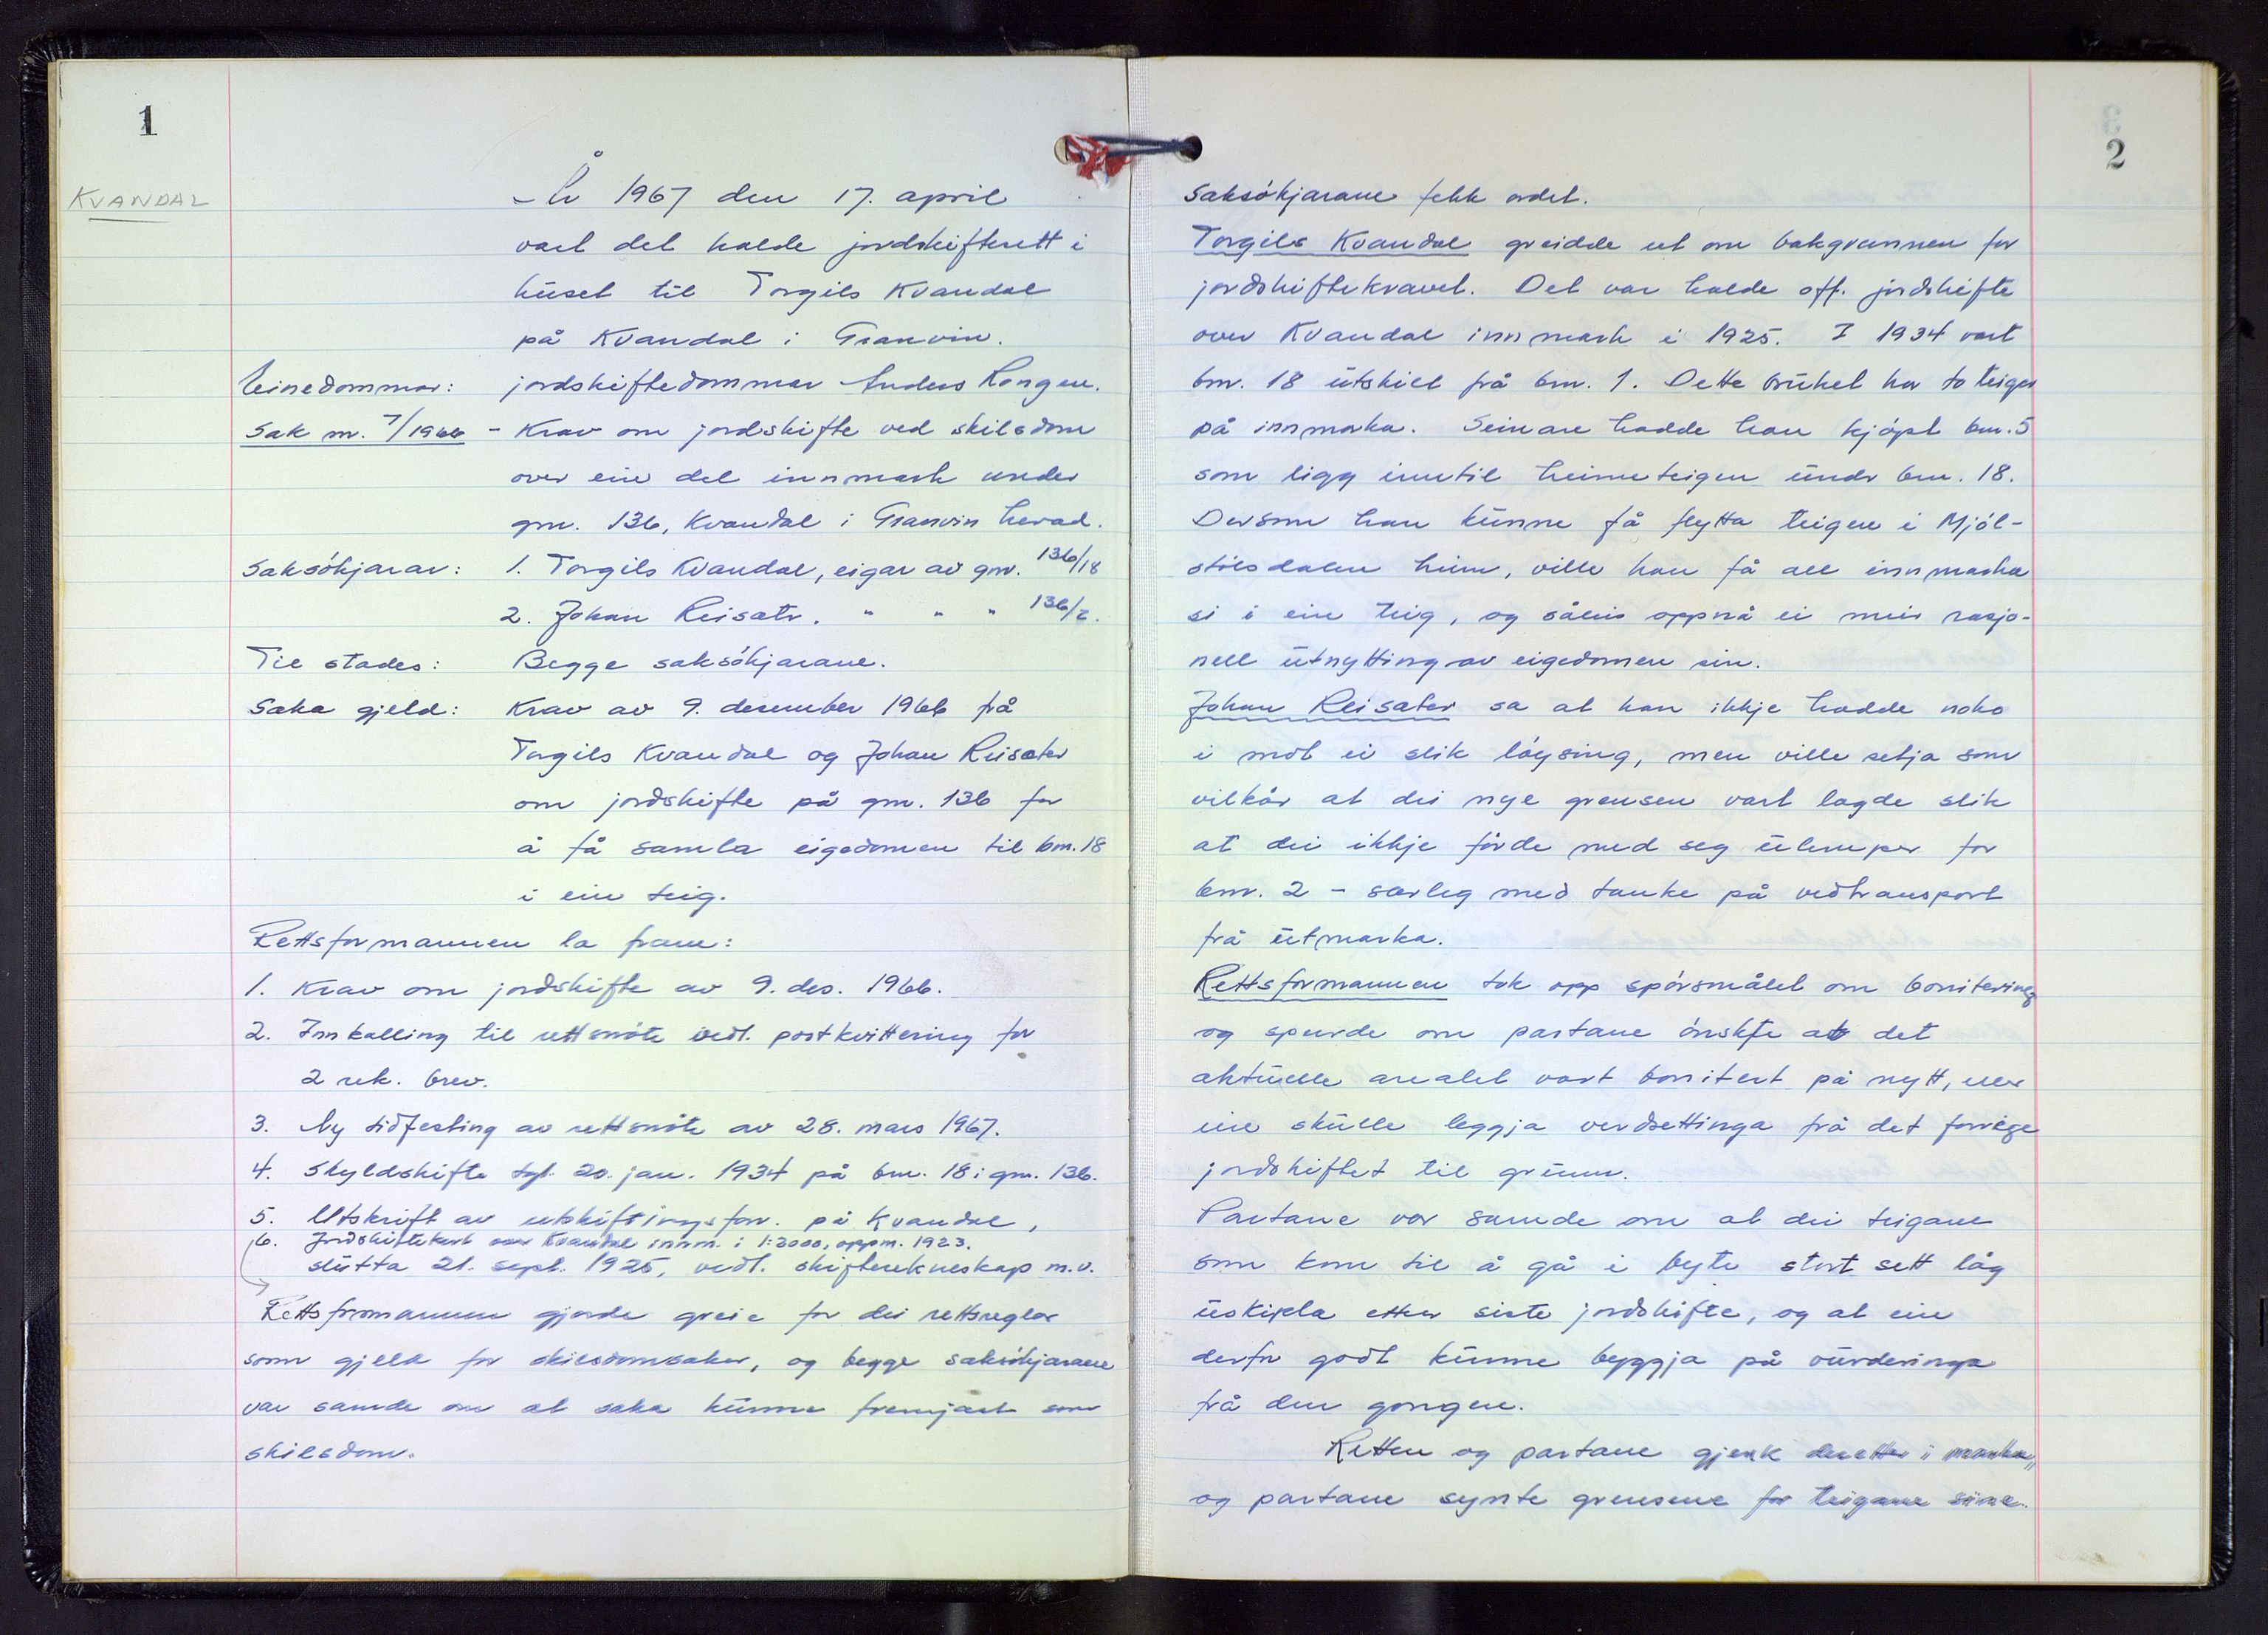 1
KVANDAL
År 1967 den 17. april
vart det halde jordskifterett i
huset til Torgils Kvandal
på Kvandal i Granvin.
Einedommar: jordskiftedommar Anders Rongen.
Sak nr. 7/1966 - Krav om jordskifte ved skilsdom
over ein del innmark under
gnr. 136, Kvandal i Granvin herad.
Saksökjarar: 1. Torgils Kvandal, eigar av gnr. 136/18
2. Johan Reisæter. " " " 136/2.
Til stades: Begge saksökjarane.
Saka gjeld: Krav av 9. desember 1966 frå
Torgils Kvandal og Johan Reisæter
om jordskifte på gnr. 136 for
å få samla eigedomen til bnr. 18
i ein teig.
Rettsformannen la fram:
1. Krav om jordskifte av 9. des. 1966.
2. Innkalling til rettsmöte vedl. postkvittering for
2 rek. brev.
3. Ny tidfesting av rettsmöte av 28. mars 1967.
4. Skyldskifte tgl. 20. jan. 1934 på bnr. 18 i gnr. 136.
5. Utskrift av utskiftingsforr. på Kvandal,
6. Jordskiftekart over Kvandal innm. i 1:2000, oppm. 1923.
slutta 21. sept. 1925, vedl. skifterekneskap m.v.
Rettsformannen gjorde greie for dei rettsreglar
som gjeld for skilsdomsaker, og begge saksökjarane
var samde om at saka kunne fremjast som
skilsdom.
2
Saksökjarane fekk ordet.
Torgils Kvandal greidde ut om bakgrunnen for
jordskiftekravet. Det var halde off. jordskifte
over Kvandal innmark i 1925. I 1934 vart
bnr. 18 utskilt frå bnr. 1. Dette bruket har to teigar
på innmarka. Seinare hadde han kjöpt bnr. 5
som ligg inntil heimeteigen under bnr. 18.
Dersom han kunne få flytta teigen i Mjöl-
stölsdalen heim, ville han få all innmarka
si i ein teig, og såleis oppnå ei meir rasjo-
nell utnytting av eigedomen sin.
Johan Reisæter sa at han ikkje hadde noko
i mot ei slik löysing, men ville setja som
vilkår at dei nye grensen vart lagde slik
at dei ikkje förde med seg ulemper for
bnr. 2 - særleg med tanke på vedtransport
frå utmarka.
Rettsformannen tok opp spörsmålet om bonitering
og spurde om partane önskte at det
aktuelle arealet vart bonitert på nytt, eller
ein skulle leggja verdsettinga frå det forrige
jordskiftet til grunn.
Partane var samde om at dei teigane
som kom til å gå i byte stort sett låg
uskipla etter siste jordskifte, og at ein
derfor godt kunne byggja på vurderinga
frå den gongen.
Retten og partane gjekk deretter i marka,
og partane synte grensene for teigane sine.